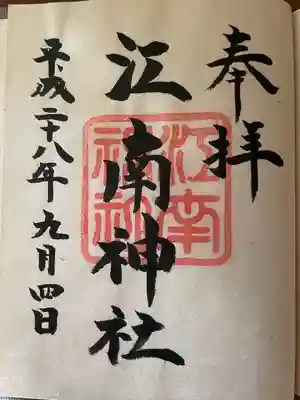 奉拝
江南神社
江南
神社
平成二十八年九月四日